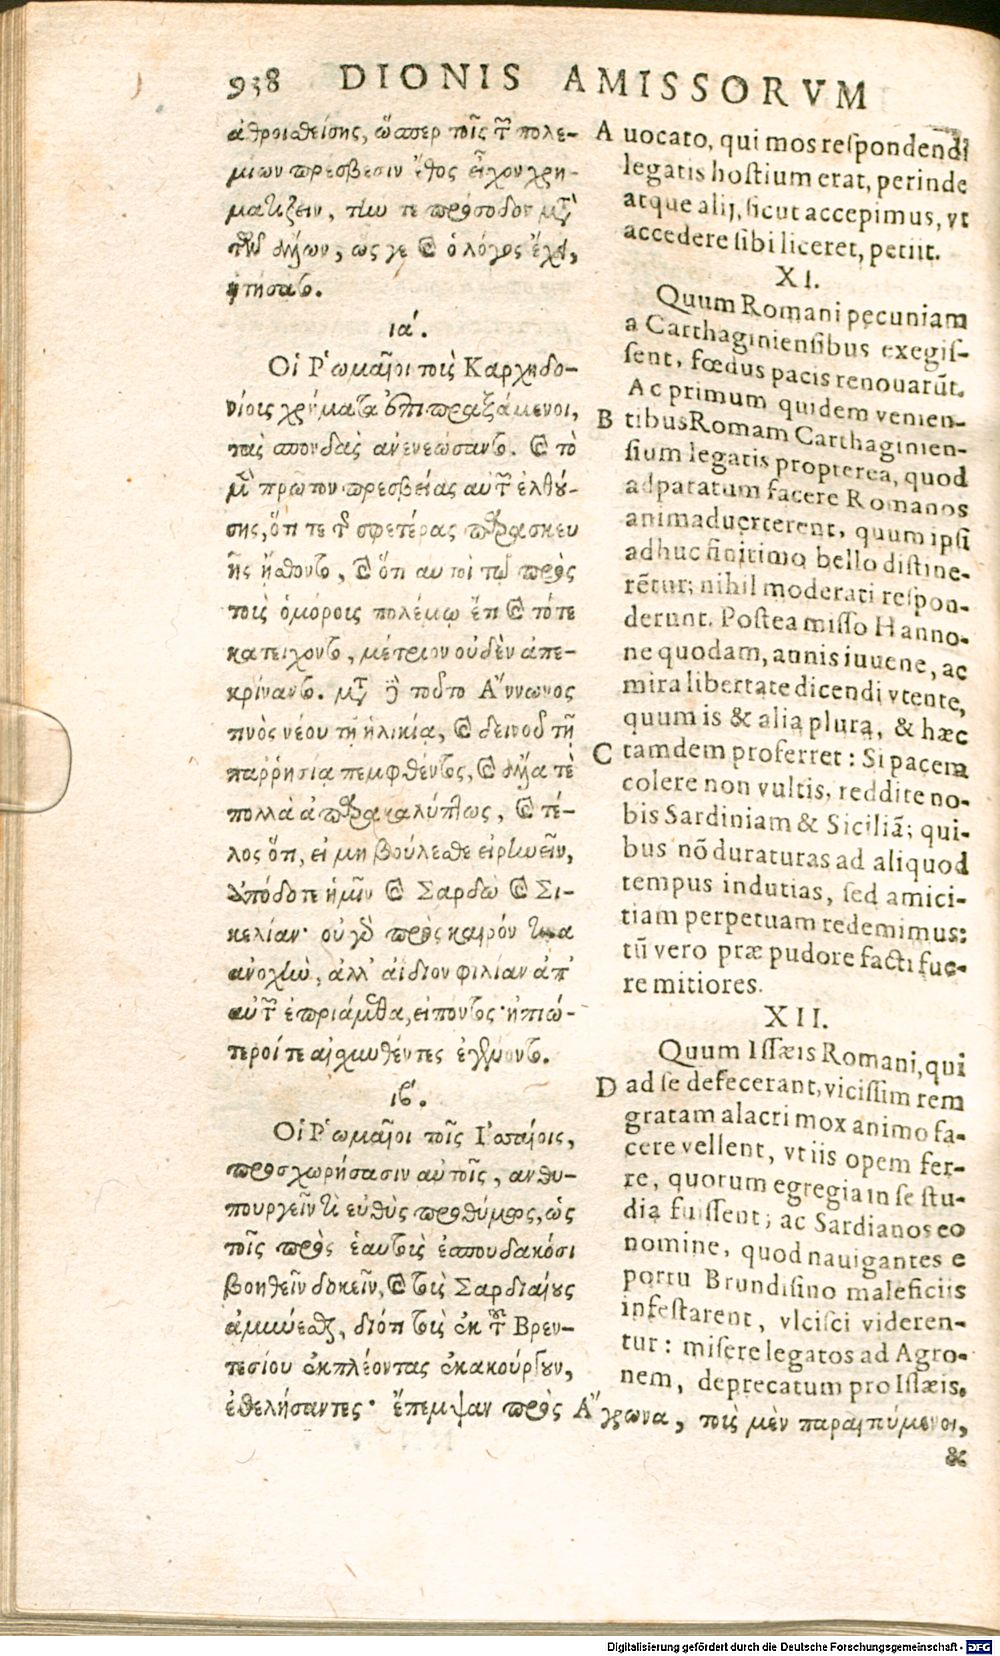 938 DIONIS AMISSORVM
ἀθροισθείσης, ὥσπερ τοῖς τῶν πολε-
μίων πρέσβεσιν ἔθος εἶχον χρη-
ματίζειν, τήν τε πρόσοδον μετὰ
τῶν ἄλλων, ὥς γε καὶ ὁ λόγος ἔχει,
ᾐτήσατο.
ια΄.
Οἱ Ῥωμαῖοι τοὺς Καρχηδο-
νίοις χρήματα ἐπιπραξάμενοι,
τὰς σπονδὰς ἀνενεώσαντο. καὶ τὸ
μὲν πρῶτον πρεσβείας αὐτῶν ἐλθού-
σης, ὅτι τε τῆς σφετέρας παρασκευ
ῆς ᾔσθοντο, καὶ ὅτι αὐτοὶ τῷ πρὸς
τοὺς ὁμόροις πολέμῳ ἔτι καὶ τότε
κατείχοντο, μέτριον οὐδὲν ἀπε-
κρίναντο. μετὰ δὲ τοῦτο Ἄννωνος
τινὸς νέου τῇ ἡλικίᾳ, καὶ δεινοῦ τῇ
παρρησίᾳ πεμφθέντος, καὶ ἄλλα τὲ
πολλὰ ἀπαρακαλύπτως, καὶ τέ-
λος ὅτι, εἰ μὴ βούλεσθε εἰρηνεῖν,
ἀπόδοτε ἡμῖν καὶ Σαρδὼ καὶ Σι-
κελίαν· οὐ γὰρ πρὸς καιρόν τινα
ἀνοχὴν, ἀλλ' ἀίδιον φιλίαν ἀπ'
αὐτῶν ἐπριάμεθα, εἰπόντος· ἠπιώ-
τεροί τε αἰσχυνθέντες ἐγένοντο.
ιβ΄.
Οἱ Ῥωμαῖοι τοῖς Ἰσσαίοις,
προσχωρήσασιν αὐτοῖς, ἀνθυ-
πουργεῖν τὶ εὐθὺς προθύμως, ὡς
τοῖς πρὸς ἑαυτοὺς ἐσπουδακόσι
βοηθεῖν δοκεῖν, καὶ τοὺς Σαρδιαίους
ἀμύνεσθαι, διότι τοὺς ἐκ τοῦ Βρεν-
τεσίου ἐκπλέοντας ἐκακούργουν,
ἐθελήσαντες· ἔπεμψαν πρὸς Ἄγρωνα, τοὺς μὲν παραιτούμενοι,
A uocato, qui mos respondendi
legatis hostium erat, perinde
atque alij, sicut accepimus, vt
accedere sibi liceret, petiit.
XI.
Quum Romani pecuniam
a Carthaginiensibus exegis-
sent, fœdus pacis renouarūt.
Ac primum quidem venien-
B tibus Romam Carthaginien-
sium legatis propterea, quod
adparatum facere Romanos
animaduerterent, quum ipsi
adhuc finitimo bello distine-
rētur; nihil moderati respon-
derunt. Postea misso Hanno-
ne quodam, annis iuuene, ac
mira libertate dicendi vtente,
quum is & alia plura, & hæc
C tamdem proferret: Si pacem
colere non vultis, reddite no-
bis Sardiniam & Siciliā; qui-
bus nō duraturas ad aliquod
tempus indutias, sed amici-
tiam perpetuam redemimus:
tū vero præ pudore facti fue-
re mitiores.
XII.
Quum Issæis Romani, qui
D ad se defecerant, vicissim rem
gratam alacri mox animo fa-
cere vellent, vt iis opem fer-
re, quorum egregia in se stu-
dia fuissent; ac Sardianos eo
nomine, quod nauigantes e
portu Brundisino maleficiis
infestarent, vlcisci videren-
tur: misere legatos ad Agro-
nem, deprecatum pro Issæis,
&
Digitalisierung gefördert durch die Deutsche Forschungsgemeinschaft - DFG